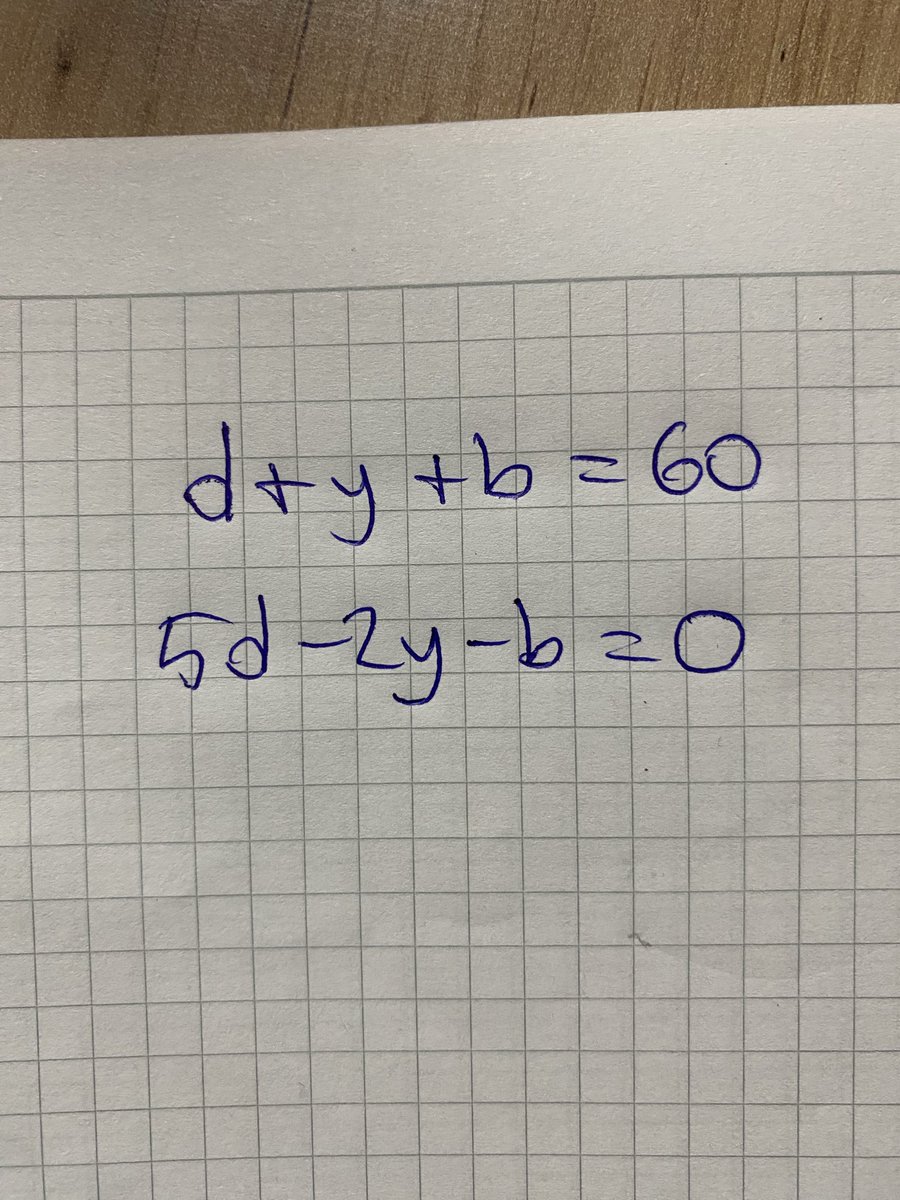 d+y+b=60
5d-2y-b=0